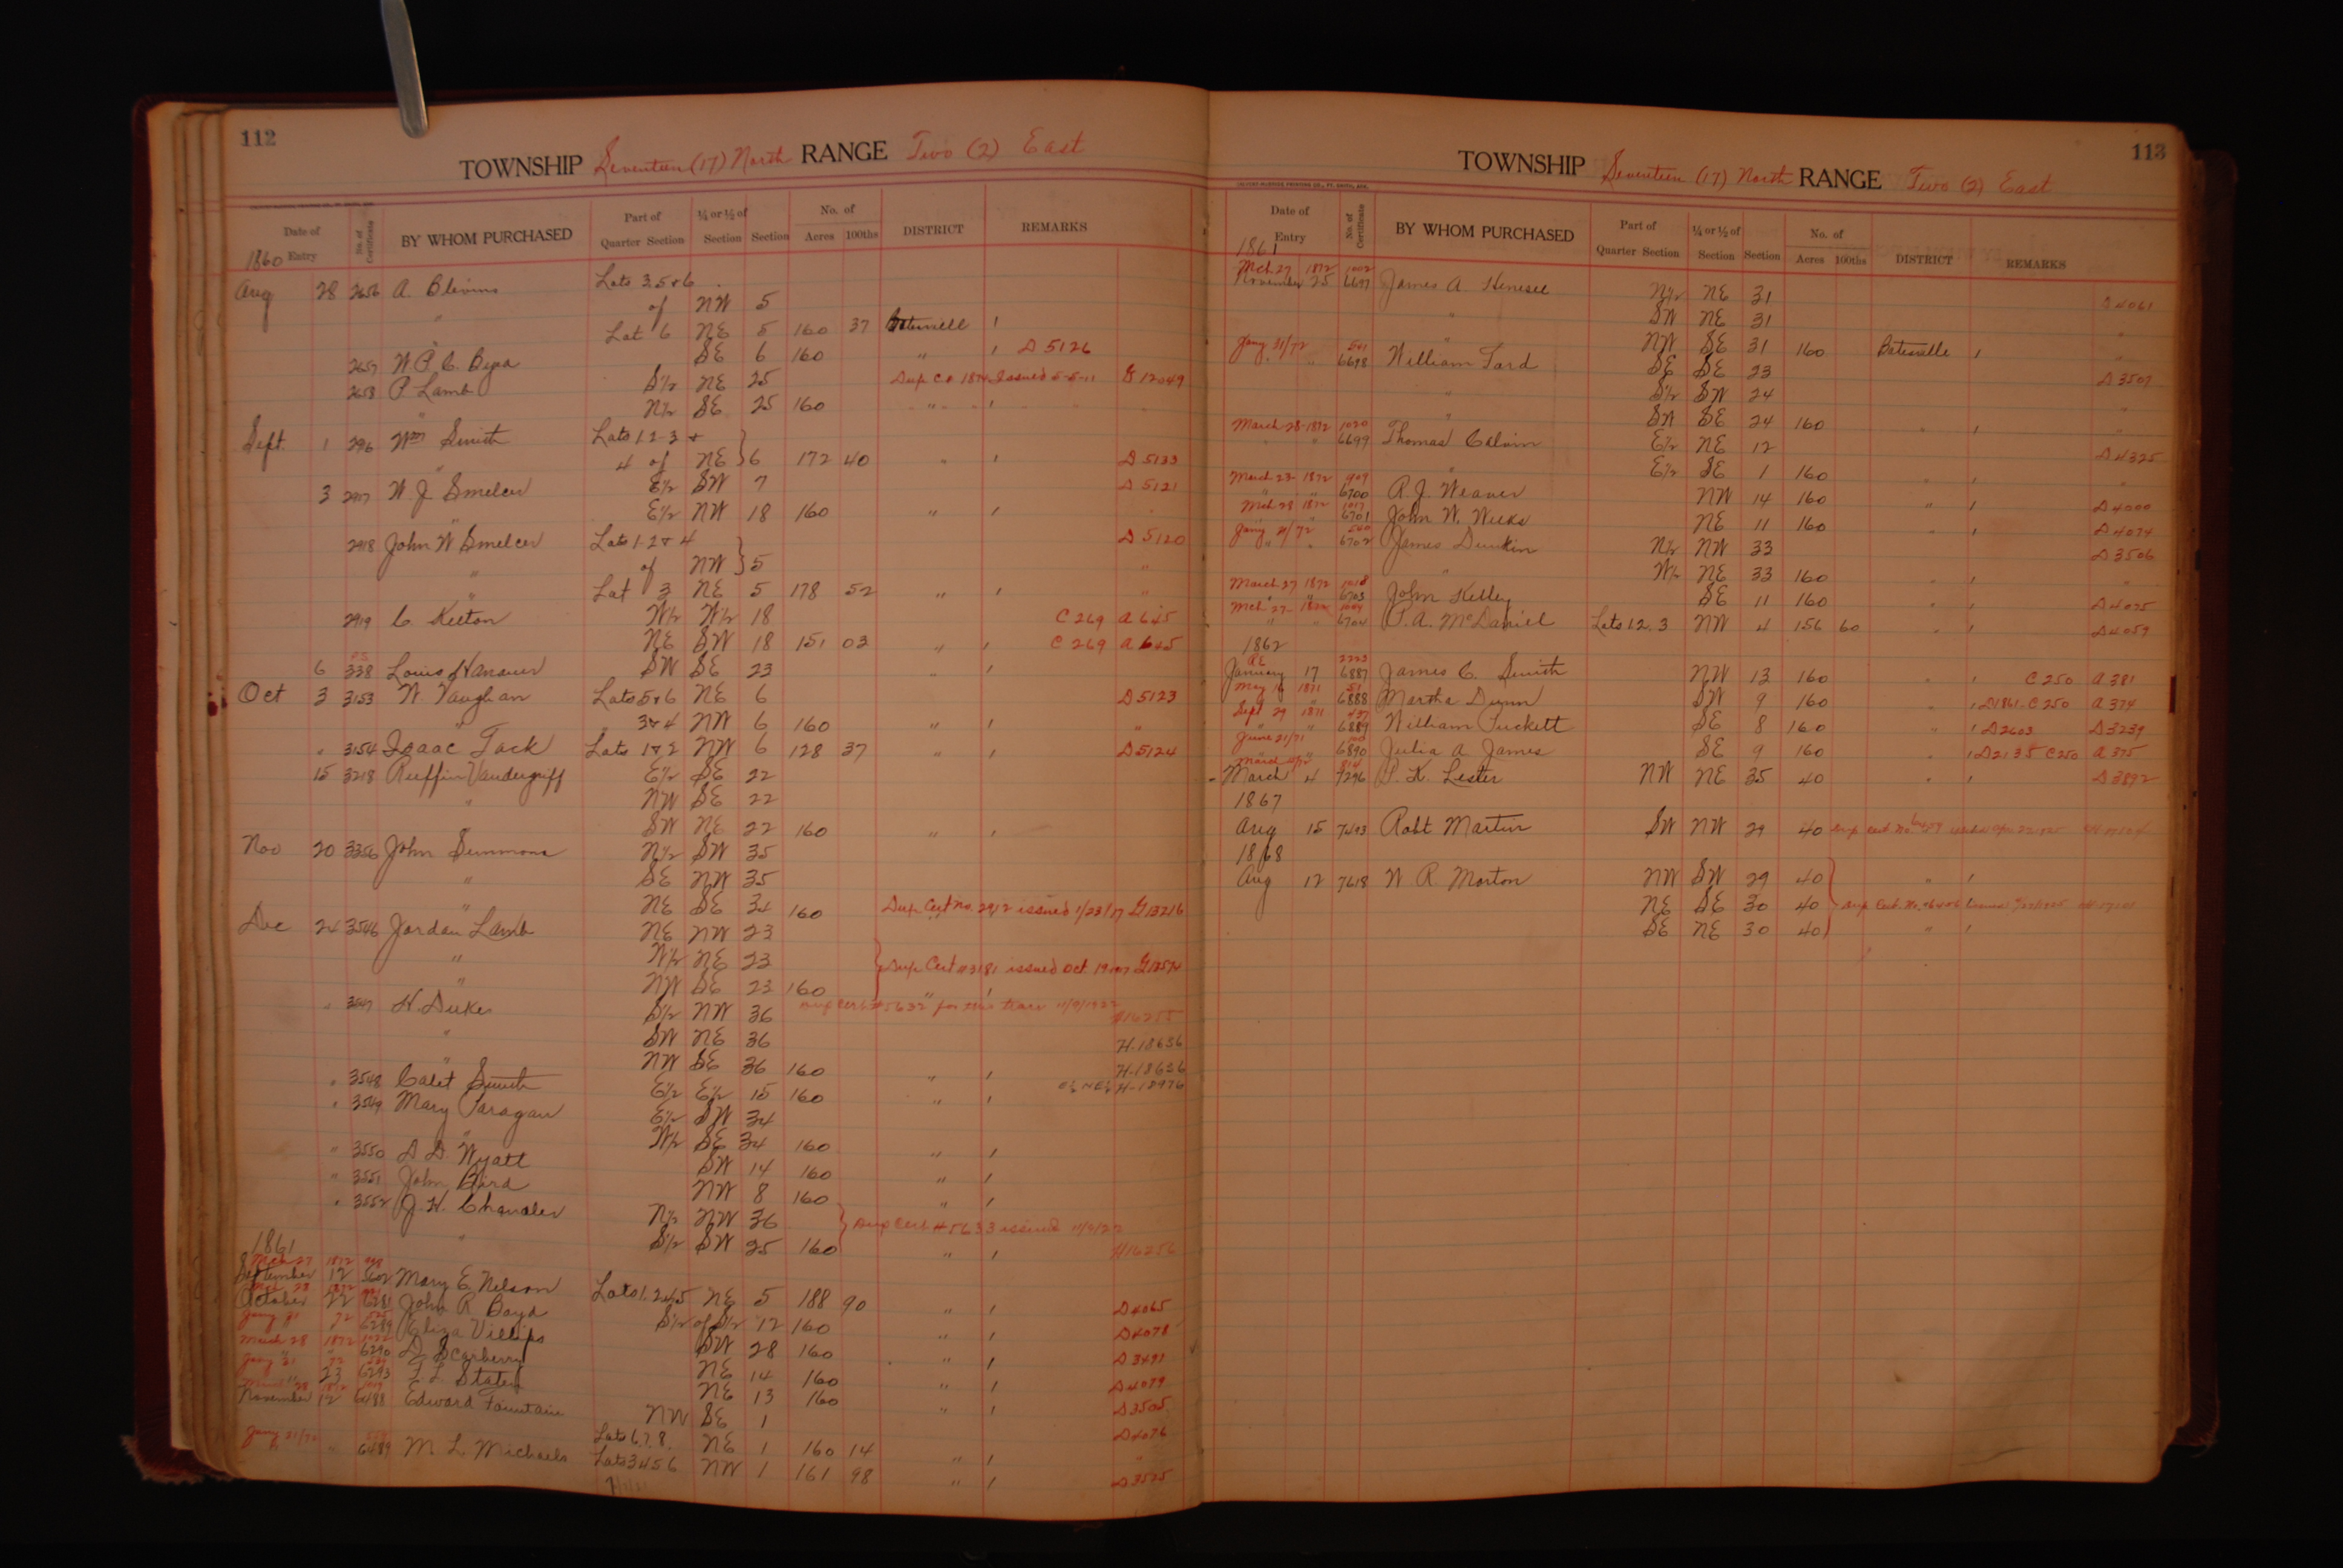 112
TOWNSHIP Seventeen (17) North RANGE Two (2) East
Date of Entry No. of Certificate BY WHOM PURCHASED Part of Quarter Section ¼ or ½ of Section Section No. of Acres 100ths DISTRICT REMARKS
1860
Aug 28 2656 A. Blevins Lots 3, 5 & 6
" of NW 5
" Lot 6 NE 5 160 37 Batesville "
2657 W. P. C. SE 6 160 " " D 5126
2658 P Lamb S½ NE 25 Dup C# 1874 Issued 5-5-11 G 12049
" N½ SE 25 160 " "
Sept. 1 2916 Wm Smith Lots 1. 2- 3 &
" 4 of NE 6 172 40 " " D 5133
3 2917 W. J. Smelcer E½ SW 7 D 5121
" E½ NW 18 160 " "
2918 John W Smelcer Lots 1. 2 & 4 D 5120
of NW 5 "
" Lot 3 NE 5 178 52 " " "
2919 C. Keeton W½ W½ 18 C 269 A 645
NE SW 18 151 03 " " C 269 A 645
6 P.S. 338 Louis Hanauer SW SE 23 " "
Oct 3 3153 W. Vaughan Lots 5 & 6 NE 6 D 5123
" " 3 & 4 NW 6 160 " " "
" 3154 Isaac Tack Lots 1 & 2 NW 6 128 37 " " D 5124
15 3218 Ruffin Vandergriff E½ SE 22
" NW SE 22
SW NE 22 160 " "
Nov 20 3356 John Simmons N½ SW 35
" SE NW 35
" NE SE 34 160 Dup Cert no. 2912 issued 1/23/17 G 13216
Dec 24 3546 Jordan Lamb NE NW 23
" W½ NE 23 Dup Cert #3181 issued Oct 19
" NW SE 23 160 " "
" 3547 H. Dukes S½ NW 36 Dup Cert #5632 for this tract 11/9/1922 H16255
" SW NE 36 H-18636
" NW SE 36 160 " " H-18636
" 3548 Calet Smith E½ E½ 15 160 " " H-18976
" 3549 Mary Faragan E½ SW 34
" W½ SE 34 160 " "
" 3550 D. D. Wyatt SW 14 160 " "
" 3551 John Bird NW 8 160 " "
" 3552 J. H. Chandler N½ NW 36 Dup Cert #5633 issued 11/9/22
" S½ SW 25 160 " " H16256
1861
Mch 27 1872
September 12 Mary E. Nelson NE 5 188 90 " " D4065
October 22 6281 John R Boyd S½ of S½ 12 160 " " D4078
Jany 31 72 6289 Eliza SW 28 160 " " D3491
March 28 1872 6290 D. Scarberry NE 14 160 " " D4079
Jany 31 72 23 6293 Staten NE 13 160 " " D3505
November 12 6488 Edward Fountain NW SE 1 D4076
Lots 6. 7. 8. NE 1 160 14 " " "
Jany 31/72 " 6489 M. L. Michaels Lots 3 4 5 6 NW 1 161 98 " " D3525
113
TOWNSHIP Seventeen (17) North RANGE Two (2) East
Date of Entry No. of Certificate BY WHOM PURCHASED Part of Quarter Section ¼ or ½ of Section Section No. of Acres 100ths DISTRICT REMARKS
1861
Mch 27 1872 1002
November 25 6697 James A Henesee N½ NE 31 D 4061
" SW NE 31 "
" NW SE 31 160 Batesville " "
Jany 31/72 541
" " 6698 William Tard SE SE 23 D 3507
" S½ SW 24 "
" SW SE 24 160 " " "
March 28 1872 1020
" " 6699 Thomas Calvin E½ NE 12 D 4325
" E½ SE 1 160 " " "
March 23- 1872 909
" " 6700 R. J. Weaver NW 14 160 " " D4000
Mch 28 1872 1017
" " 6701 John W. Weeks NE 11 160 " " D4074
Jany 31/72 540
" " 6702 James Dunkin N½ NW 33 D3506
" W½ NE 33 160 " " "
March 27 1872 1018
" " 6703 John Kelley SE 11 160 " " D4075
Mch 27- 1872
" " 6704 P. A. McDaniel Lots 1. 2. 3 NW 4 156 60 " " D4059
1862
2223
January 17 6887 James C. Smith NW 13 160 " " C 250 A 381
May 16 1871 51
6888 Martha Dunn SW 9 160 " " D1861- C 250 A 374
Sept 29 1871 437
" " 6889 William Tuckett SE 8 160 " " D2603 D3239
June 21/71 100
" " 6890 Julia A James SE 9 160 " " D2135 C250 A 375
814
March 4 7296 P. K. Lester NW NE 35 40 " " D3892
1867
Aug 15 7493 Robt Martin SW NW 29 40
1868
Aug 12 7618 W. R. Morton NW SW 29 40 " "
NE SE 30 40
SE NE 30 40 " "